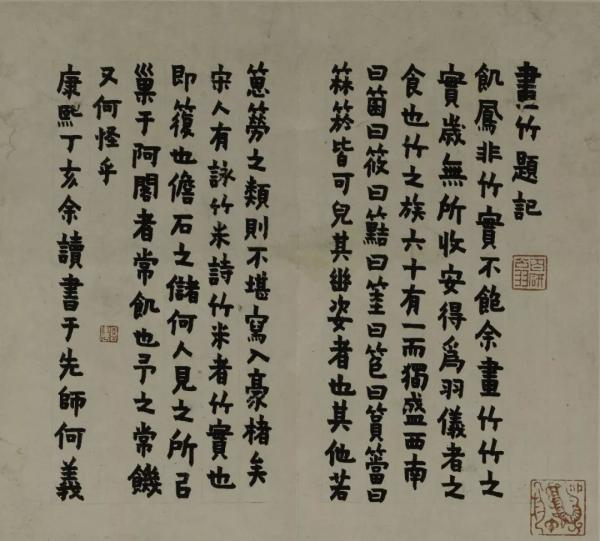 畫竹題記
飢鳳非竹實不飽余畫竹竹之
實歲無所收安得爲羽儀者之
食也竹之族六十有一而獨盛西南
曰箘曰筱曰曰筀曰笆曰篔簹曰
箖箊皆可兒其幽姿者也其他若
簩之類則不堪寫入豪楮矣
宋人有詠竹米詩竹米者竹實也
即也儋石之儲何人見之所㠯
巢于阿閣者常飢也予之常饑
又何怪乎
康熙丁亥余讀書于先師何義